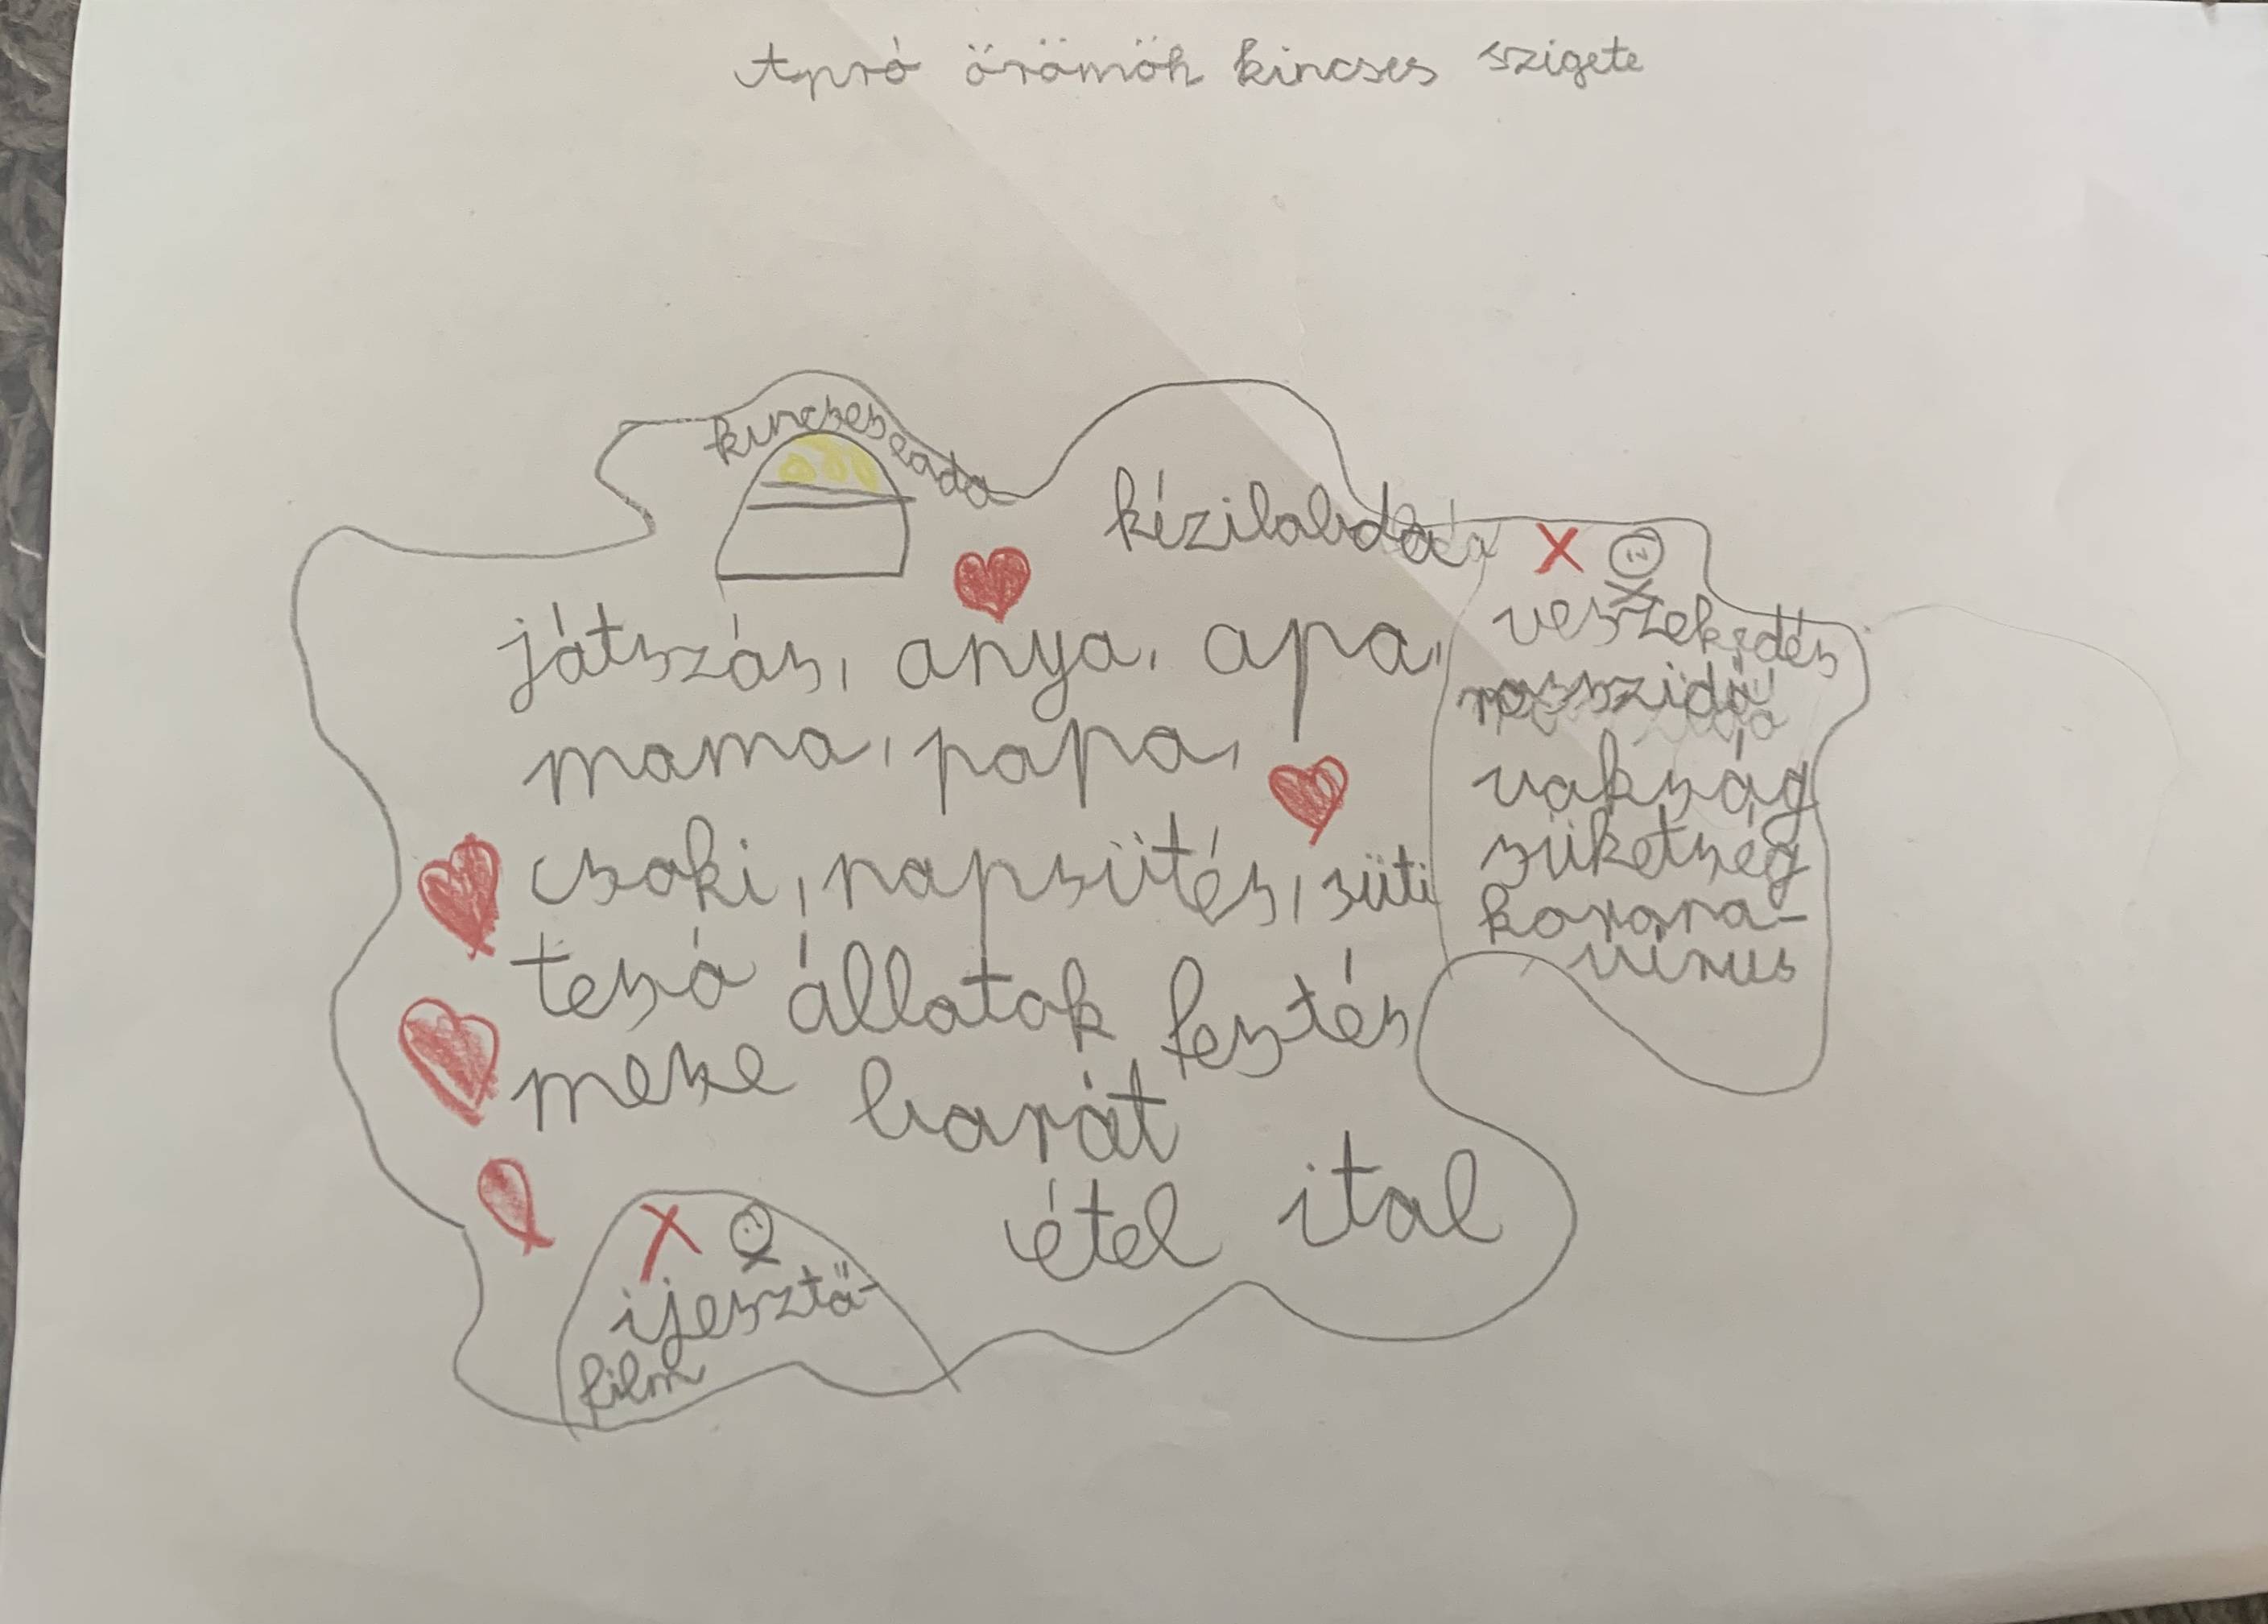 Apró örömök kincses szigete
kincses láda
kézilabda
játszás, anya, apa,
mama, papa,
csoki, napsütés, süti
tesó állatok festés
mese barát
étel ital
X
veszekedés
rosszidő
vakság
süketség
korona-
vírus
X
ijesztő-
film